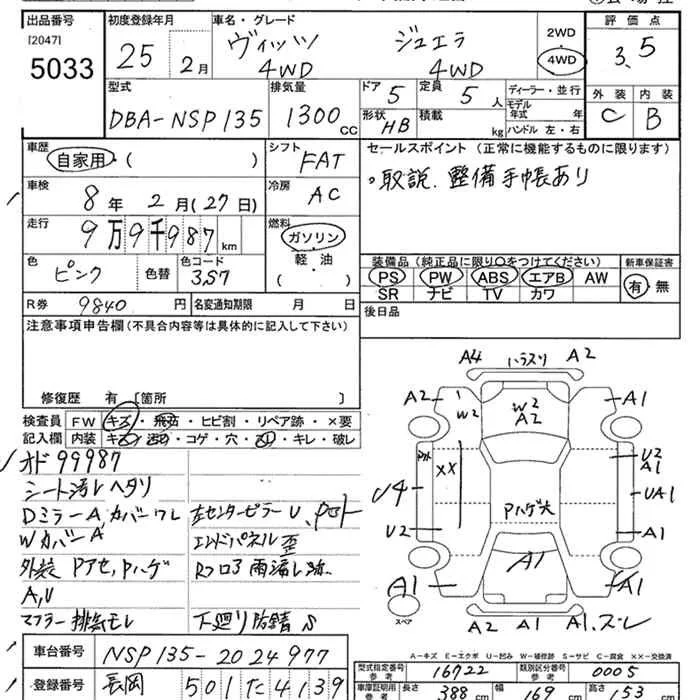 出品番号 初度登録年月 車名・グレード 2WD 評価点
[2047] 25 2月 ヴィッツ ジュエラ 3.5
5033 4WD 4WD 4WD
型式 排気量 ドア 5 定員 5人 ディーラー・並行 外装 内装
DBA-NSP135 1300cc 形状 HB 積載 kg モデル年式 年 C B
ハンドル 左・右
車歴 自家用・( ) シフト FAT セールスポイント (正常に機能するものに限ります)
車検 8年 2月(27日) 冷房 AC 。取説.整備手帳あり
走行 9万9千987km 燃料 ガソリン
軽油
( )
色 ピンク 色替 色コード 3S7 装備品 (純正品に限り○をつけてください) 新車保証書
PS PW ABS エアB AW 有・無
SR ナビ TV カワ
R券 9840円 名変通知期限 月 日 後日品
注意事項申告欄(不具合内容等は具体的に記入して下さい)
修復歴 有 [箇所 ]
検査員 FW キズ・飛石・ヒビ割・リペア跡・×要
記入欄 内装 ・コゲ・穴・ ・キレ・破レ
オド99987
シート汚レヘタリ
Dミラー A,カバーワレ 左センターピラー U、
Wカバー A エンドパネル歪
外装 Pアセ,Pハゲ Rフロア雨漏レ跡.
A,U
マフラー排気モレ 下廻り防錆 S
車台番号 NSP135-2024977
登録番号 長岡 501 た 4139
A4 ハラスリ A2
A2 W2 W2 A2 A1
XX U2 A1
U4 Pハゲ大 UA1
U2 A1
A1 A1 A1
スペア A2 A1 A1.ズレ
A-キズ E-エクボ U-凹み W-補修跡 S-サビ C-腐食 XX-交換済
型式指定番号 参考 16722 類別区分番号 参考 0005
車庫証明用 参考 長さ 388cm 幅 169cm 高さ 153cm